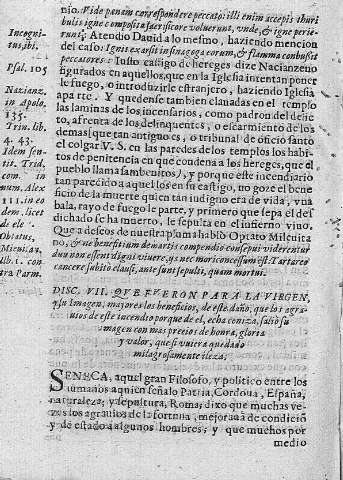 nio. Vide panam correspondere peccato: illi enim accepis thuri
bulis igne composito sacrificare voluerunt, vnde, & igne perie-
runt; Atendio Dauid a lo mesmo, haziendo mencion
del caso: Ignis exarsit in sinagoga eorum, & flamma combussit
peccatores: Iusto castigo de hereges dize Nacianzeno
figurados en aquellos, que en la Iglesia intentan poner
le fuego, o introduzirle estranjero, haziendo Iglesia
aparte. Y quedense tambien clauadas en el templo
las laminas de los incensarios, como padron del delic-
to, afrenta de los delinquentes, o escarmiento de los
demas; que tan antiguo es, o tribunal de oficio santo
el colgar V. S. en las paredes de los templos los habi-
tos de penitencia en que condena a los hereges, que el
pueblo llama sambenitos, y porque este incendiario
tan parecido a aquellos en su castigo, no goze el bene
ficio de la muerte quien tan indigno era de vida, vna
bala, rayo de fuego le parte, y primero que sepa el des
dichado se ha muerto, le sepulta en el infierno viuo.
Que a deseos de nuestra pluma habló Optato Mileuita
no, & ne benefitium de martis compendio consequi viderentur
duo non essent digni viuere, ys nec mori concessum est. Tartareo
cancere subitò clausi, ante sunt sepulti, quam mortui.
Incogni-
tus, ibi.
Psal. 105
Nazianz.
in Apolo.
135.
Trin. lib.
4. 43.
Idem sen-
tit. Trid.
com. in
num. Alex
111. in eo
dem. licet
de ele
Obtatus.
Mieui. au.
lib. 1. con
tra Parm.
DISC. VII. QVE FVERON PARA LA VIRGEN,
y su Imagen, mayores los beneficios, de este daño; que los agra-
uios de este incendio porque de el, echa ceniza, saliò su
imagen con mas precios de honra, gloria
y valor, que si vuiera quedado
milagrosamente ileza.
SENECA, aquel gran Filosofo, y politico entre los
humanos aquien señalo Patria, Cordoua, España,
naturaleza; y sepultura, Roma; dixo que muchas ve-
zes los agrauios de la fortuna, mejoraua de condiciō
y de estado a algunos hombres; y que muchos por
medio